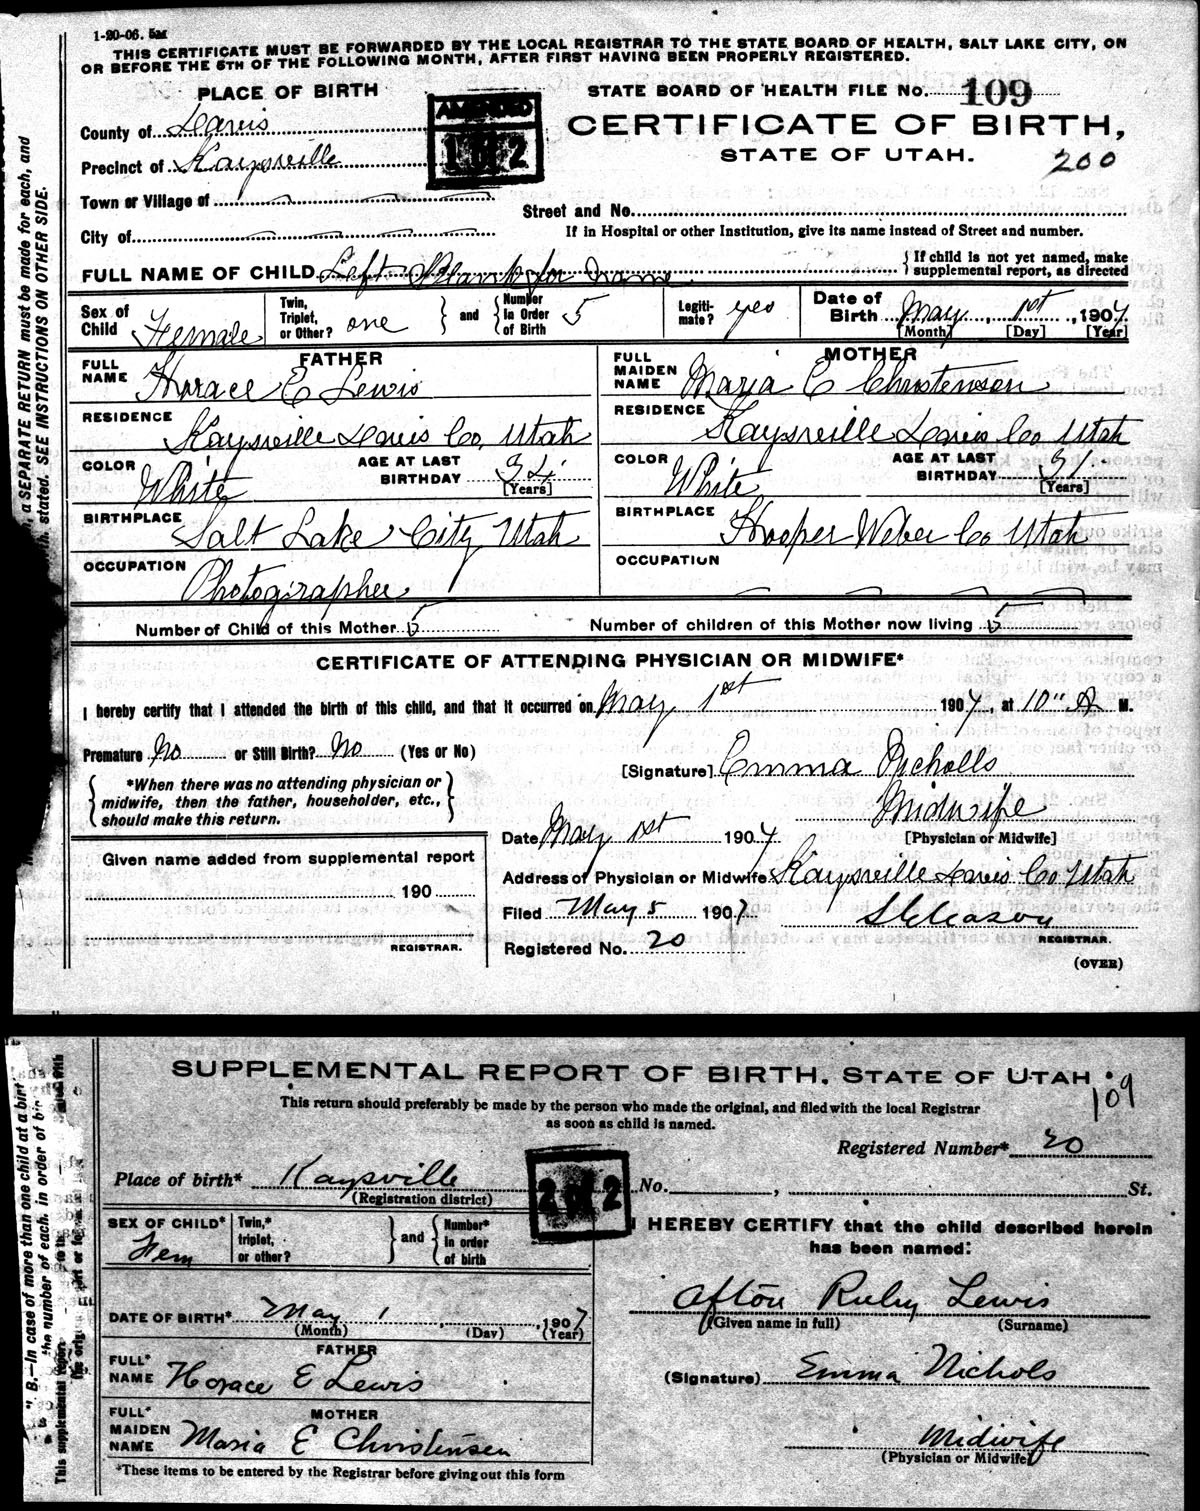 1-20-06. 5m
THIS CERTIFICATE MUST BE FORWARDED BY THE LOCAL REGISTRAR TO THE STATE BOARD OF HEALTH, SALT LAKE CITY, ON
OR BEFORE THE 5TH OF THE FOLLOWING MONTH, AFTER FIRST HAVING BEEN PROPERLY REGISTERED.
PLACE OF BIRTH
STATE BOARD OF HEALTH FILE No. 109
County of Davis
AMENDED
1 of 2
CERTIFICATE OF BIRTH,
Precinct of Kaysville
STATE OF UTAH.
200
Town or Village of
Street and No.
City of
If in Hospital or other Institution, give its name instead of Street and number.
FULL NAME OF CHILD Left Blank for name
{ If child is not yet named, make
supplemental report, as directed
Sex of Child Female
Twin, Triplet, or Other? one } and { Number in Order of Birth 5
Legiti-mate? yes
Date of Birth May 1st, 1907
[Month] [Day] [Year]
FATHER
MOTHER
FULL NAME Horace E Lewis
FULL MAIDEN NAME Maria E Christensen
RESIDENCE Kaysville Davis Co, Utah
RESIDENCE Kaysville Davis Co Utah
COLOR White
AGE AT LAST BIRTHDAY 34 [Years]
COLOR White
AGE AT LAST BIRTHDAY 31 [Years]
BIRTHPLACE Salt Lake City Utah
BIRTHPLACE Hooper Weber Co Utah
OCCUPATION Photographer
OCCUPATION
Number of Child of this Mother 5
Number of children of this Mother now living 5
CERTIFICATE OF ATTENDING PHYSICIAN OR MIDWIFE*
I hereby certify that I attended the birth of this child, and that it occurred on May 1st 1907, at 10 A M.
Premature No or Still Birth? No (Yes or No)
[Signature] Emma Nicholls
{ *When there was no attending physician or
midwife, then the father, householder, etc.,
should make this return. }
Midwife
[Physician or Midwife]
Date May 1st 1907
Given name added from supplemental report
190
REGISTRAR.
Address of Physician or Midwife Kaysville Davis Co Utah
Filed May 5 1907
S Gleason
REGISTRAR.
Registered No. 20
(OVER)
a SEPARATE RETURN must be made for each, and
stated. SEE INSTRUCTIONS ON OTHER SIDE.
SUPPLEMENTAL REPORT OF BIRTH, STATE OF UTAH
109
This return should preferably be made by the person who made the original, and filed with the local Registrar
as soon as child is named.
Registered Number* 20
Place of birth* Kaysville
(Registration district)
2 of 2
No. , St.
SEX OF CHILD* Fem
Twin,* triplet, or other? } and { Number* in order of birth
I HEREBY CERTIFY that the child described herein
has been named:
Afton Ruby Lewis
(Given name in full) (Surname)
DATE OF BIRTH* May 1, 1907
(Month) (Day) (Year)
FATHER
FULL* NAME Horace E Lewis
(Signature) Emma Nichols
MOTHER
FULL* MAIDEN NAME Maria E Christensen
Midwife
(Physician or Midwife)
*These items to be entered by the Registrar before giving out this form
B.—In case of more than one child at a birt
the number of each, in order of bir
This supplemental repor